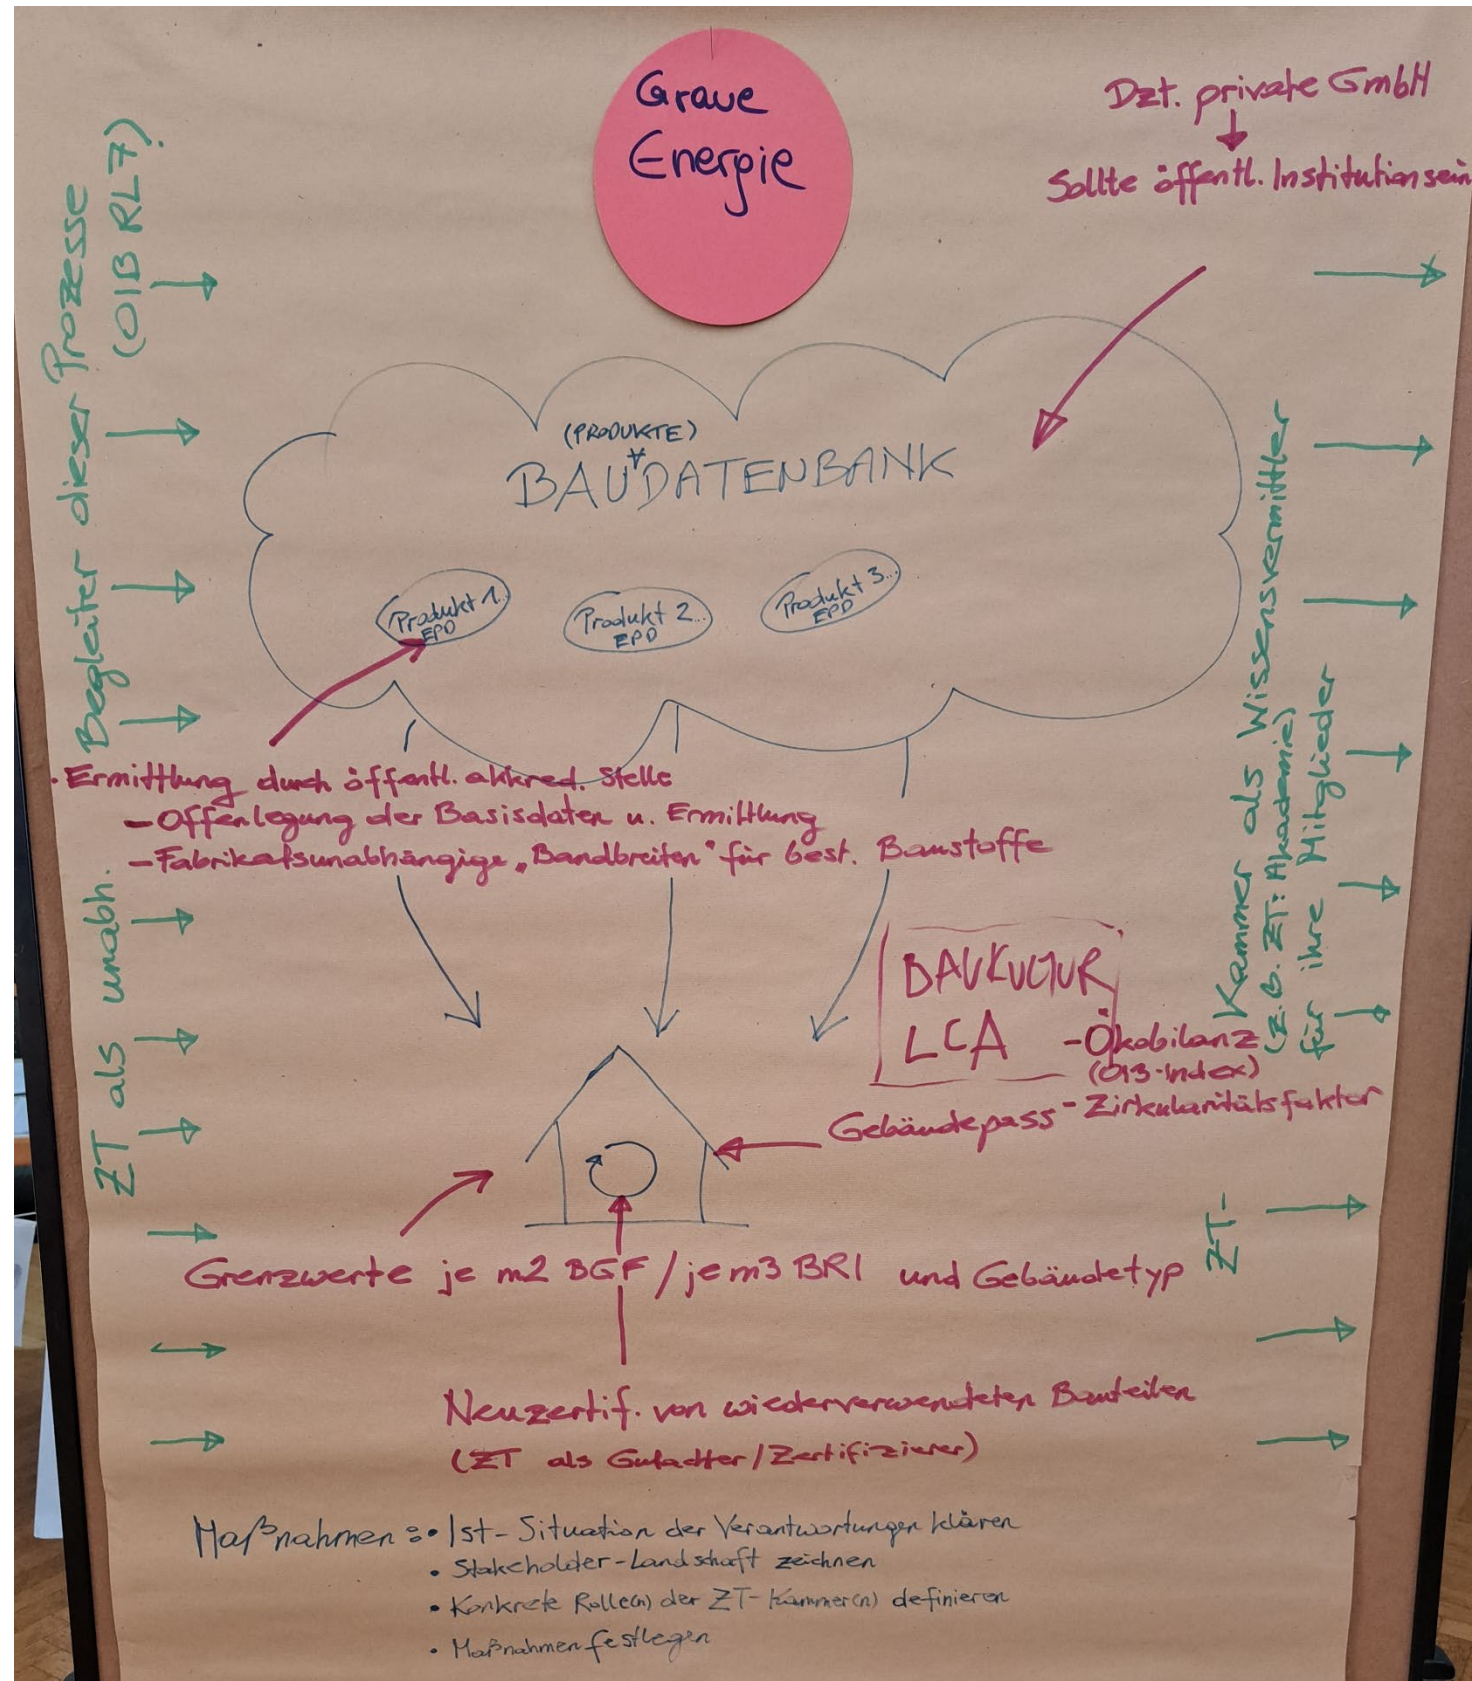 Graue
Energie
Dzt. private GmbH
Sollte öffentl. Institution sein
ZT als unabh. Begleiter dieser Prozesse
(OIB RL7)
(PRODUKTE)
BAUDATENBANK
Produkt 1...
EPD
Produkt 2...
EPD
Produkt 3...
EPD
· Ermittlung durch öffentl. akkred. Stelle
- Offenlegung der Basisdaten u. Ermittlung
- Fabrikatsunabhängige „Bandbreiten" für best. Baustoffe
BAUKULTUR
LCA - Ökobilanz
(OI3-Index)
Gebäudepass - Zirkularitätsfaktor
ZT- Kammer als Wissensvermittler
(z.B. ZT: Akademie)
für ihre Mitglieder
Grenzwerte je m2 BGF / je m3 BRI und Gebäudetyp
Neuzertif. von wiederverwendeten Bauteilen
(ZT als Gutachter / Zertifizierer)
Maßnahmen: • Ist-Situation der Verantwortungen klären
• Stakeholder-Landschaft zeichnen
• Konkrete Rolle(n) der ZT-Kammer(n) definieren
• Maßnahmen festlegen